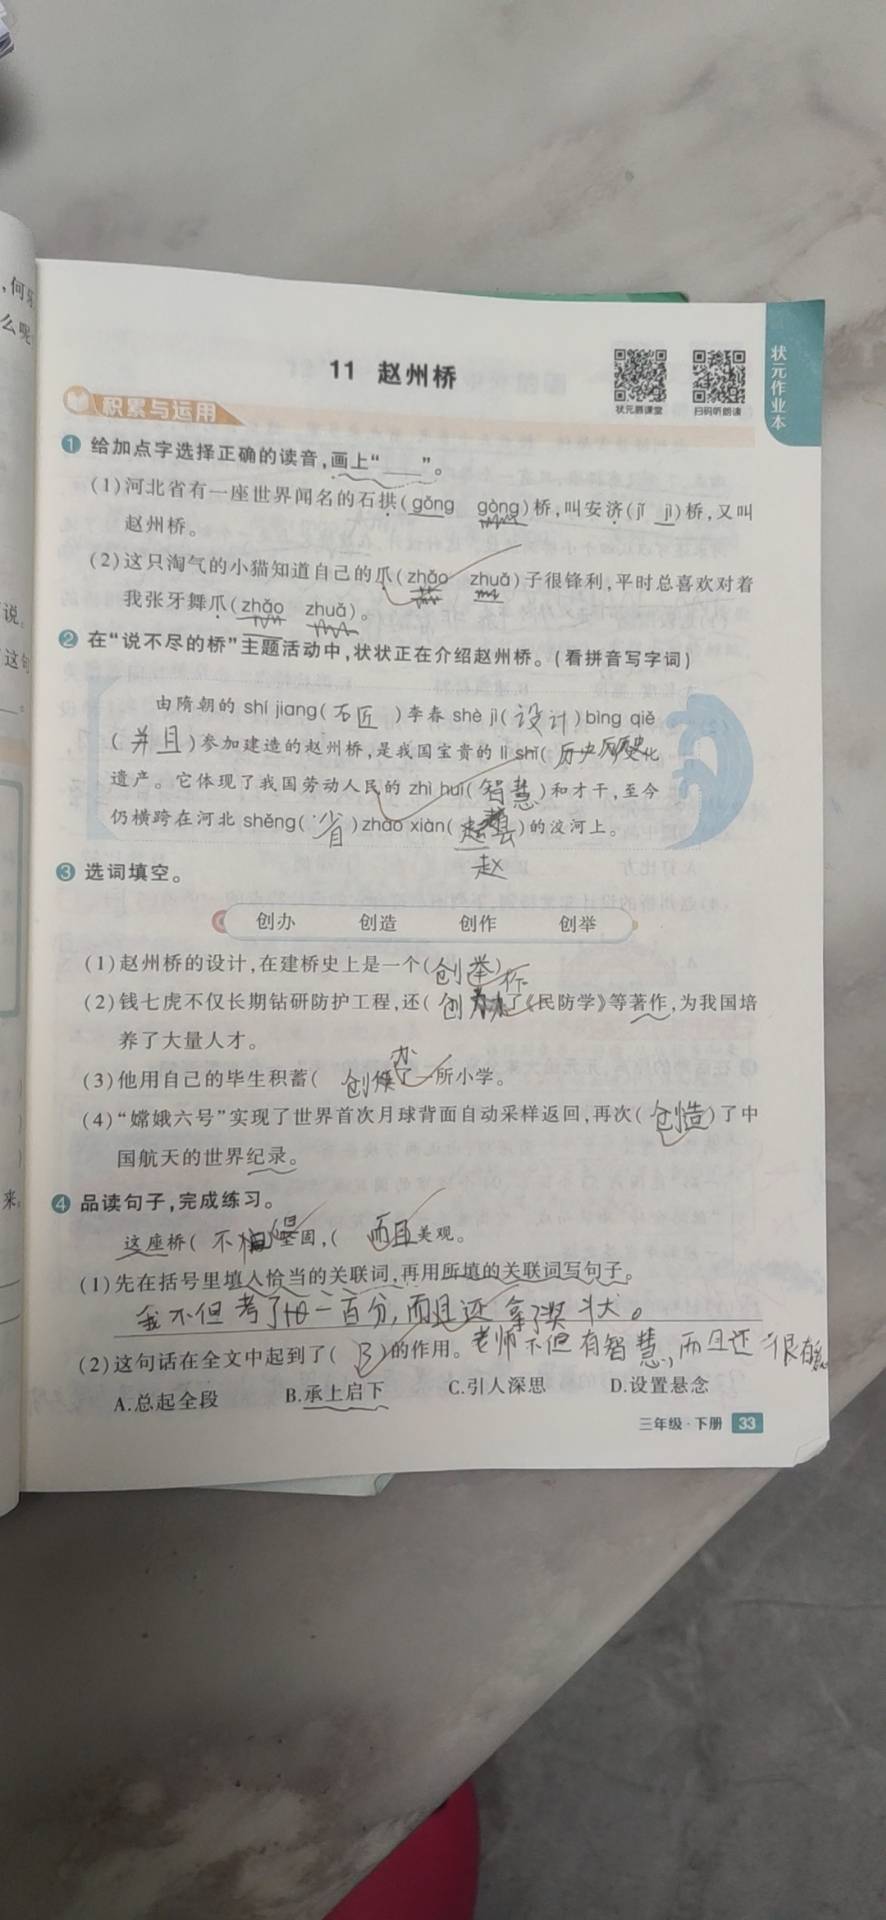 11 赵州桥
状元微课堂
扫码听朗读
状元作业本
积累与运用
1 给加点字选择正确的读音,画上“____”。
(1)河北省有一座世界闻名的石拱(gǒng gòng)桥,叫安济(jǐ jì)桥,又叫
赵州桥。
(2)这只淘气的小猫知道自己的爪(zhǎo zhuǎ)子很锋利,平时总喜欢对着
我张牙舞爪(zhǎo zhuǎ)。
2 在“说不尽的桥”主题活动中,状状正在介绍赵州桥。(看拼音写字词)
由隋朝的 shí jiang(石匠)李春 shè jì(设计)bìng qiě
(并且)参加建造的赵州桥,是我国宝贵的 lì shǐ(历史
遗产。它体现了我国劳动人民的 zhì huì(智慧)和才干,至今
仍横跨在河北 shěng(省)zhào xiàn()的洨河上。
赵
3 选词填空。
创办 创造 创作 创举
(1)赵州桥的设计,在建桥史上是一个(创举)
(2)钱七虎不仅长期钻研防护工程,还(创 了《民防学》等著作,为我国培
养了大量人才。
办
(3)他用自己的毕生积蓄(创 了一所小学。
(4)“嫦娥六号”实现了世界首次月球背面自动采样返回,再次(创造)了中
国航天的世界纪录。
4 品读句子,完成练习。
这座桥(不 坚固,(而且美观。
(1)先在括号里填入恰当的关联词,再用所填的关联词写句子。
我不但考了一百分,而且还拿了奖状。
(2)这句话在全文中起到了(B)的作用。老师不但有智慧,而且还很有
A.总起全段 B.承上启下 C.引人深思 D.设置悬念
三年级·下册 33
,何
么呢
说。
这句
来,